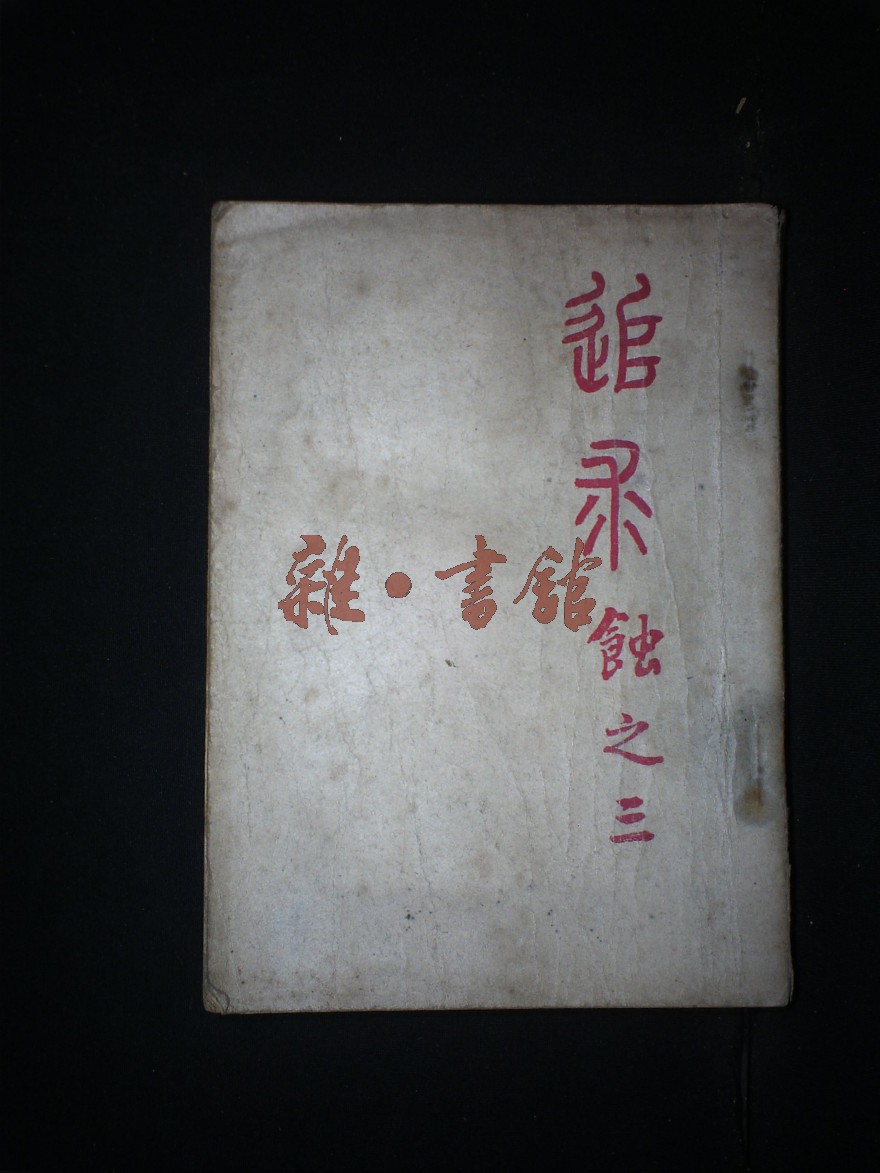 追求
蝕之三
雜·書館